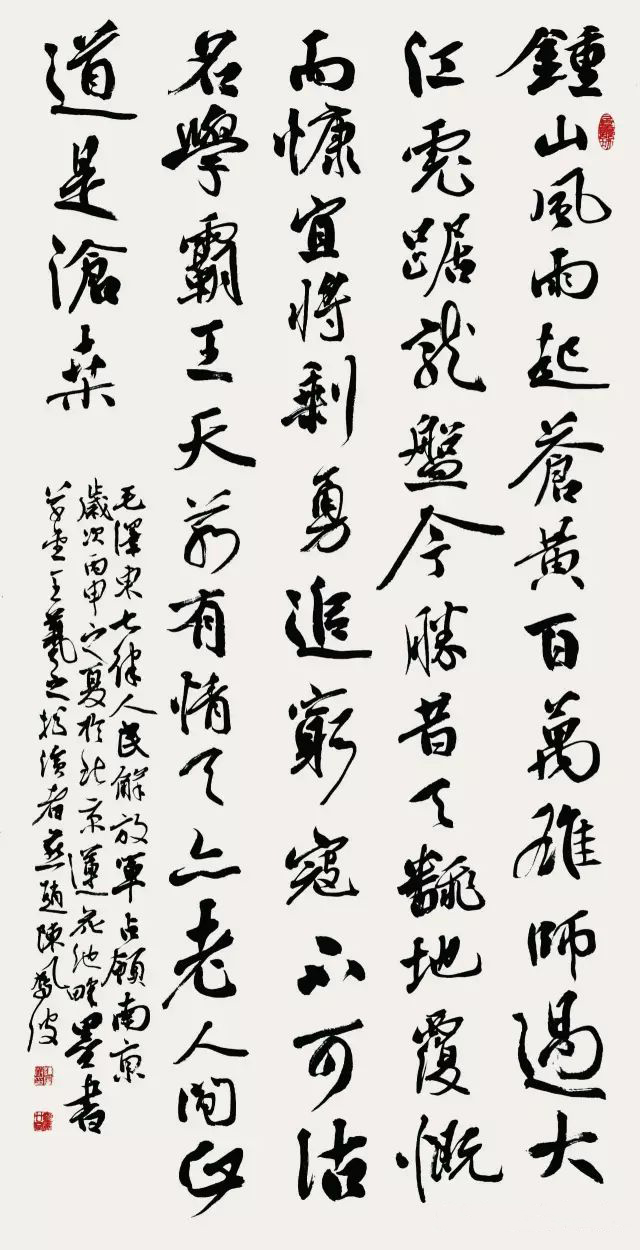 鍾山風雨起蒼黃百萬雄師過大
江虎踞龍盤今勝昔天飜地覆慨
而慷宜將剩勇追窮寇不可沽
名學霸王天若有情天亦老人間正
道是滄桑
毛澤東七律人民解放軍占領南京
歲次丙申之夏於北京蓮花池畔墨書
王羲之 者燕趙陳